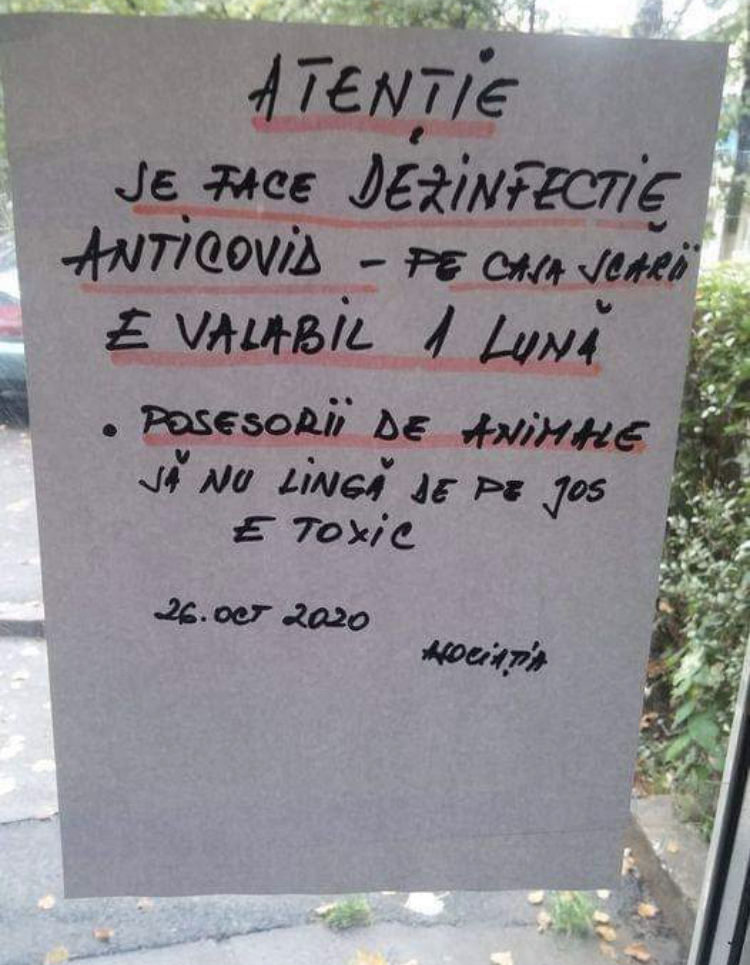 ATENȚIE
SE FACE DEZINFECTIE
ANTICOVID - PE CASA SCARII
E VALABIL 1 LUNĂ
• POSESORII DE ANIMALE
SĂ NU LINGĂ DE PE JOS
E TOXIC
26.OCT 2020
ASOCIAȚIA